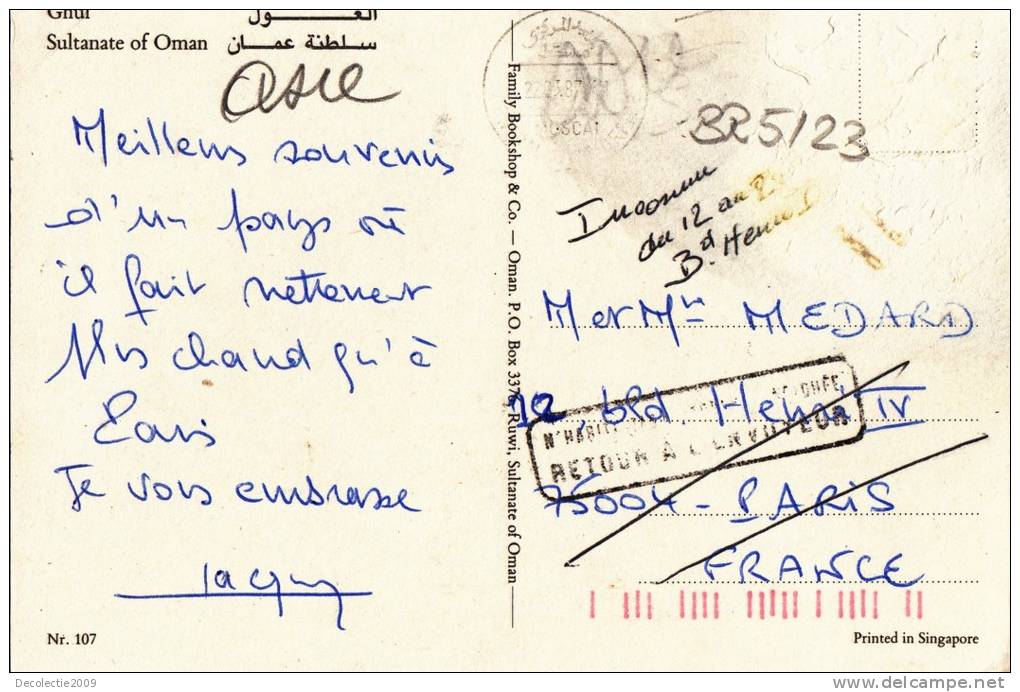 Ghul
الغول
Sultanate of Oman سلطنة عمان
Asie
Meilleurs souvenirs
d'un pays où
il fait nettement
plus chaud qu'à
Paris
Je vous embrasse
Jacquy
Nr. 107
Family Bookshop & Co. — Oman. P.O. Box 3376, Ruwi, Sultanate of Oman
BR5/23
Inconnu
du 12 au
Bd. Henri
M et Mme MEDARD
12, bld. Henri IV
75004 - PARIS
FRANCE
N'HABITE
RETOUR A L'ENVOYEUR
Printed in Singapore
Decolectie2009
www.delcampe.net